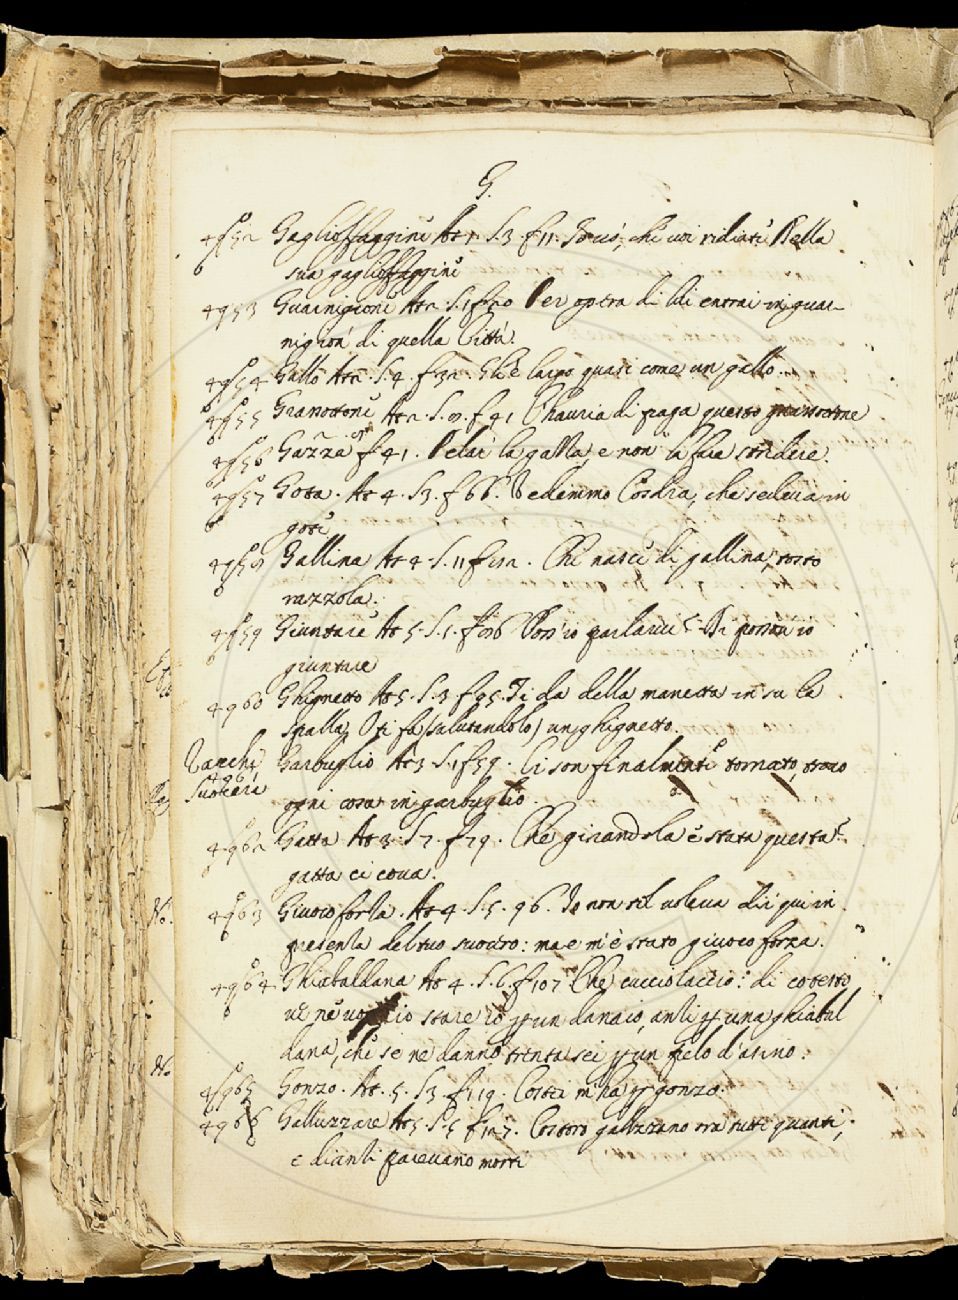 G.
4952 Gaglioffaggine At 1. S.3. f 11. So ciò, che voi ridiate Della
sua gaglioffaggine
4953 Guarnigione At 2. S.1 f 20 Per opera di lui entrai in guar-
nigion di quella Città.
4954 Gallo At 2. S. 4. f 32. Gli è largo quasi come un gallo.
4955 Granottone At 2. S. 5. f 41 L'havria di paga questo granottone
4956 Gazza f 41. Pelai la gazza, e non la fare stridere.
4957 Gota. At 4. S.3. f 66. Vedemmo che sedeva in
gote
4958 Gallina At 4. S. 11 f 132. Chi nasce di gallina, tosto
razzola.
4959 Giuntare At 5. S. 5. f Poss'io parlarvi? Di
giuntare
4960 Ghignetto At 5. S. 3. f 95. Ti da della manetta in su la
spalla, O ti fa (salutandolo) un ghignetto.
Varchi Suocera
4961 Garbuglio At 3 S. 1 f 59. Ci son finalmente tornato, trovo
ogni cosa in garbuglio.
4962 Gatta At 3. S 7. f 79. Che girandola è stata questa?
gatta ci cova.
No. 4963 Giuoco forza. At 4. S. 5. 96. Io non vel voleva dir qui in
presenza del tuo suocero: ma e' m'è stato giuoco forza.
4964 Ghiabaldana At 4. S. 6. f 107 Che cucciolaccio: di coverto,
ve ne io stare io per un danaio, anzi per una ghiabal
dana, che se ne danno trentasei per un pelo d'asino.
No 4965 Gonzo. At. 5. S 3. f 119. Costei m'ha per gonzo.
4966 Galluzzare At 5 S. 5 f 127. Costoro galluzzano ora tutti quanti;
e dianzi parevano morti